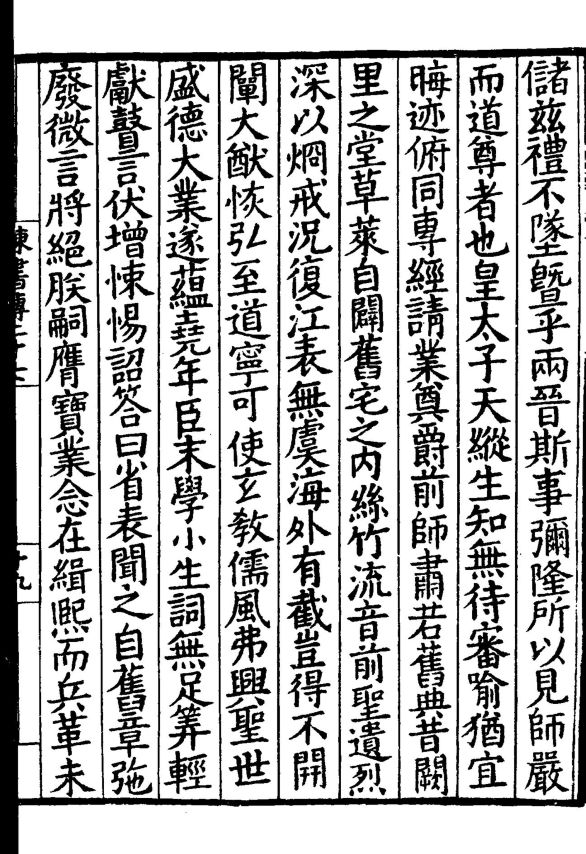 儲兹禮不墜曁乎兩晉斯事彌隆所以見師嚴
而道尊者也皇太子天縱生知無待審喻猶宜
晦迹俯同專經請業奠爵前師肅若舊典昔闕
里之堂草萊自闢舊宅之内絲竹流音前聖遺烈
深以烱戒況復江表無虞海外有截豈得不開
闡大猷恢弘至道寧可使玄敎儒風弗興聖世
盛德大業遂蘊堯年臣末學小生詞無足筭輕
獻瞽言伏增悚惕詔答曰省表聞之自舊章弛
廢微言將絕朕嗣膺寶業念在緝熙而兵革未
陳書傳二十七
十九